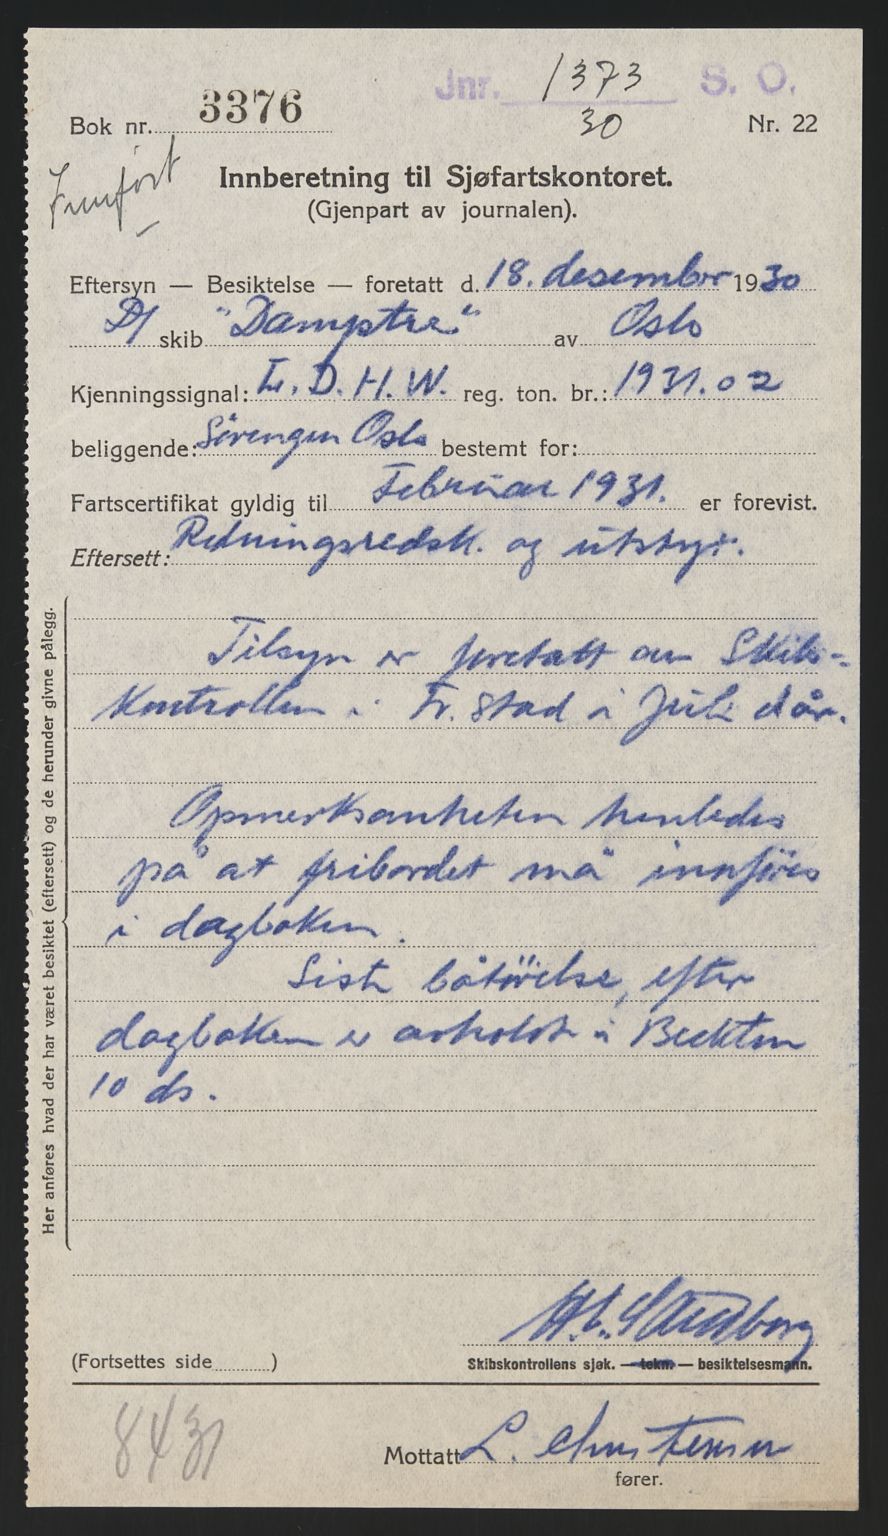 Jnr. 1373 S. O.
30
Bok nr. 3376
Nr. 22
Innført
Innberetning til Sjøfartskontoret.
(Gjenpart av journalen).
Eftersyn — Besiktelse — foretatt d. 18. desember 1930
D/ skib "Damptre" av Oslo
Kjenningssignal: L. D. H. W. reg. ton. br.: 1931.02
beliggende: Sörengen Oslo bestemt for:
Fartscertifikat gyldig til Februar 1931. er forevist.
Eftersett: Redningsredsk. og utstyr.
Tilsyn er foretatt av Skibs-
kontrollen i Fr.stad i Juli d år.
Opmerksomheten henledes
på at fribordet må innföres
i dagboken.
Siste båtövelse, efter
dagboken er avholdt i Beckton
10 ds.
Her anføres hvad der har været besiktet (eftersett) og de herunder givne pålegg.
(Fortsettes side )
Skibskontrollens sjøk. — tekn — besiktelsesmann.
Mottatt L. Christensen
fører.
8431